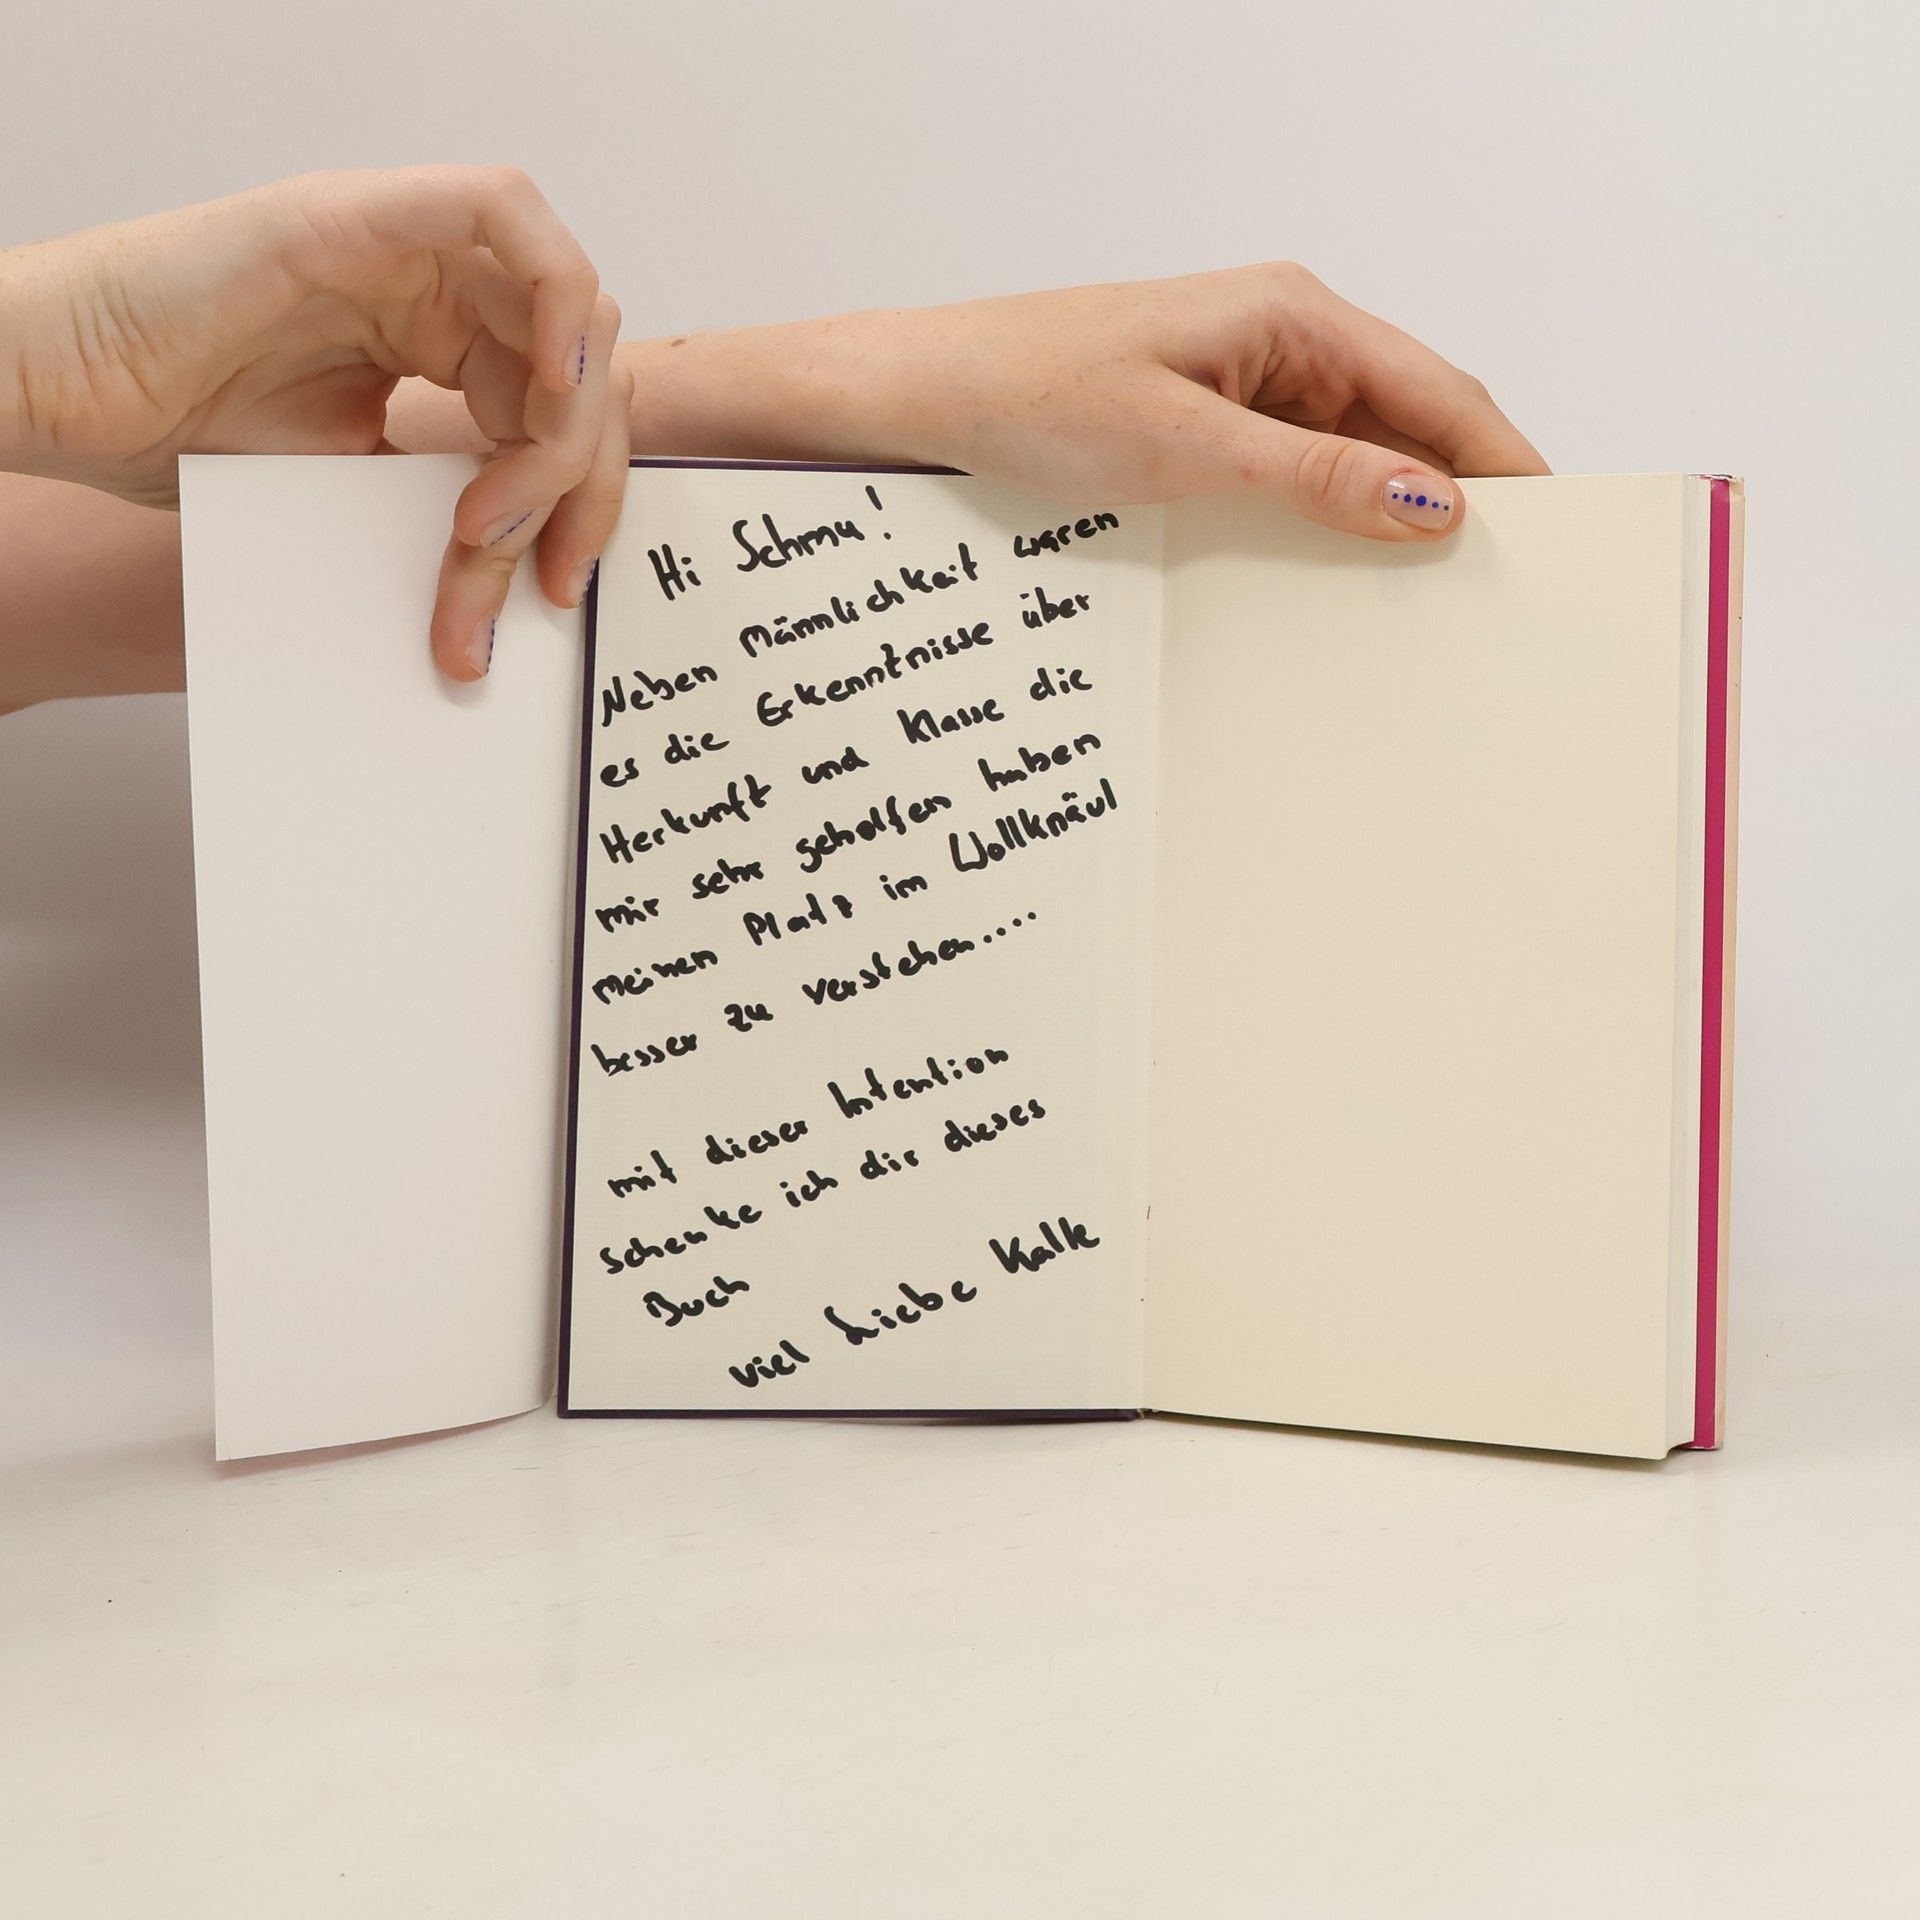 Hi Schmu!
Neben Männlichkeit waren
es die Erkenntnisse über
Herkunft und Klasse die
mir sehr geholfen haben
meinen Platz im Wollknäul
besser zu verstehen....
mit dieser Intention
schenke ich dir dieses
Buch
viel Liebe Kalle